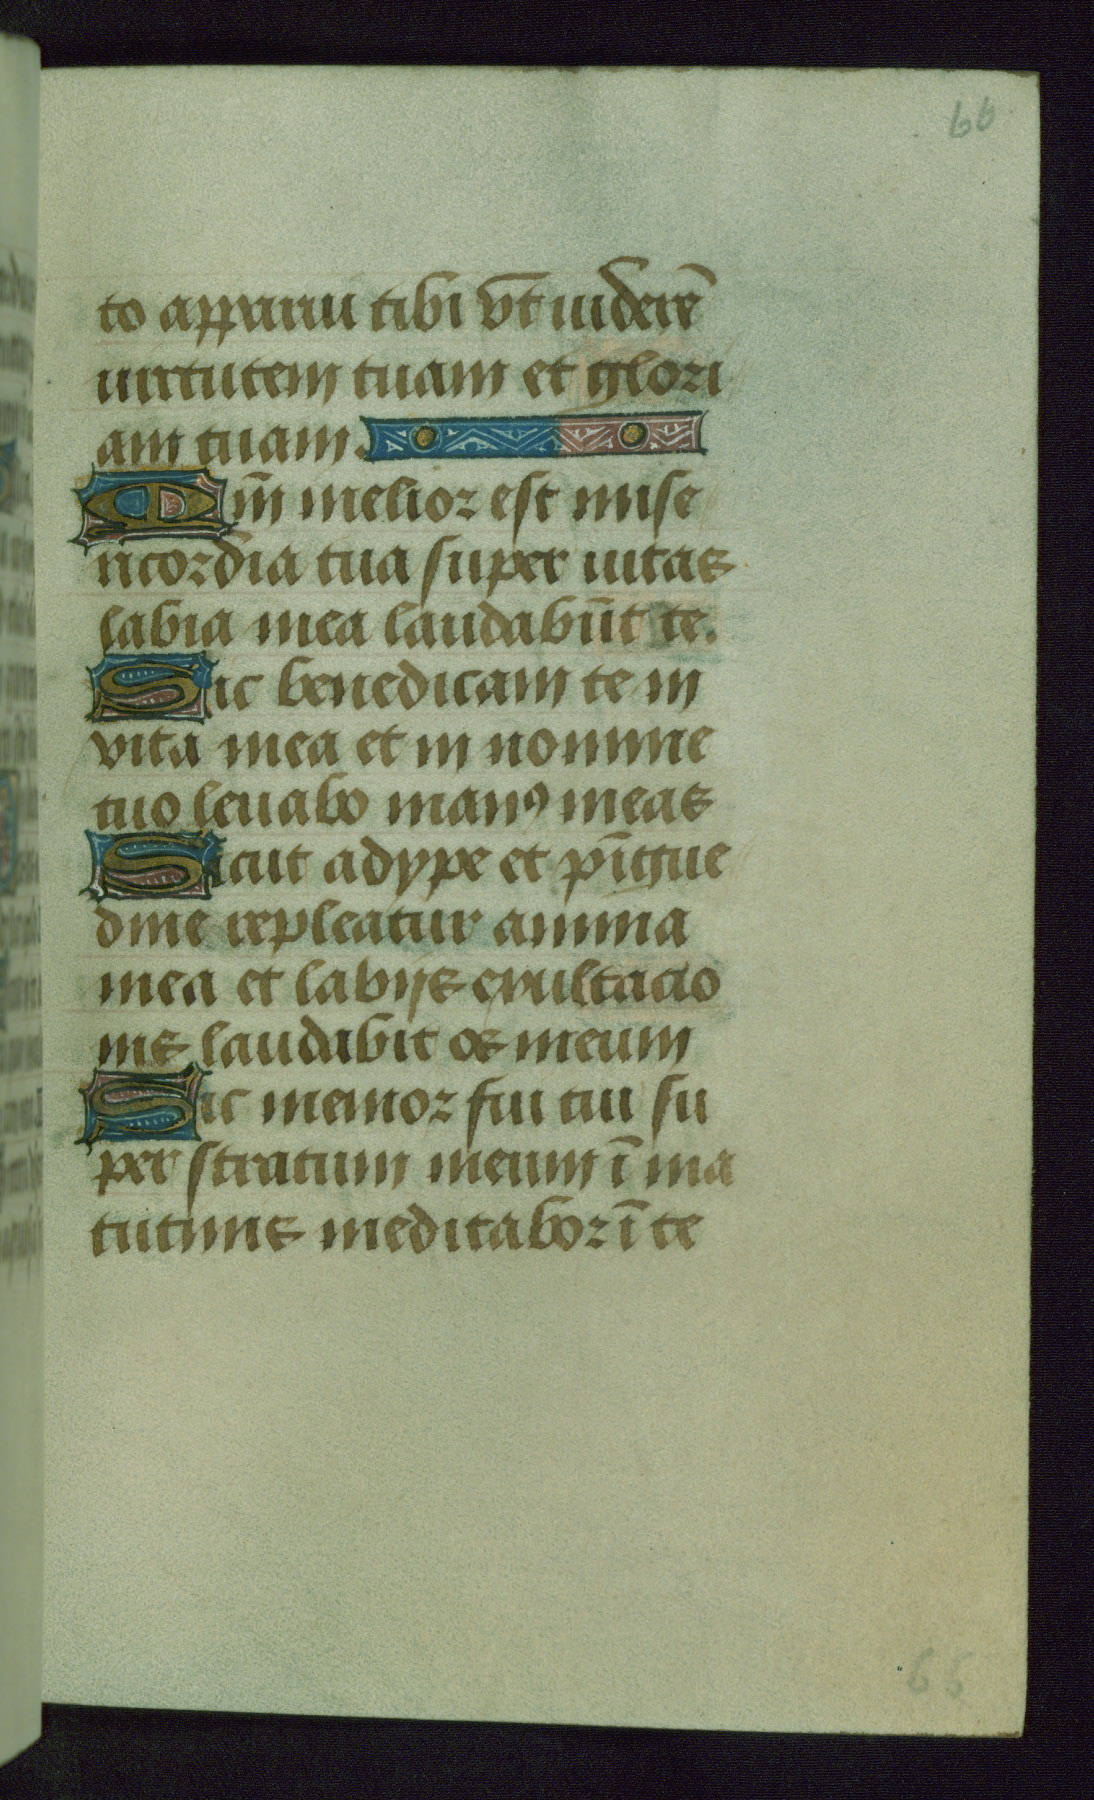 66
to apparui tibi vt̄ uiderē
uirtutem tuam et glori
am tuam.
Qm̄ melior est mise
ricordia tua super uitas
labia mea laudabūt te.
Sic benedicam te in
vita mea et in nomine
tuo leuabo manꝰ meas
Sicut adype et pīgue
dine repleatur anima
mea et labijs exultacio
nis laudabit os meum
Sic memor fui tui su
per stratum meum ī ma
tutinis meditabor ī te
65